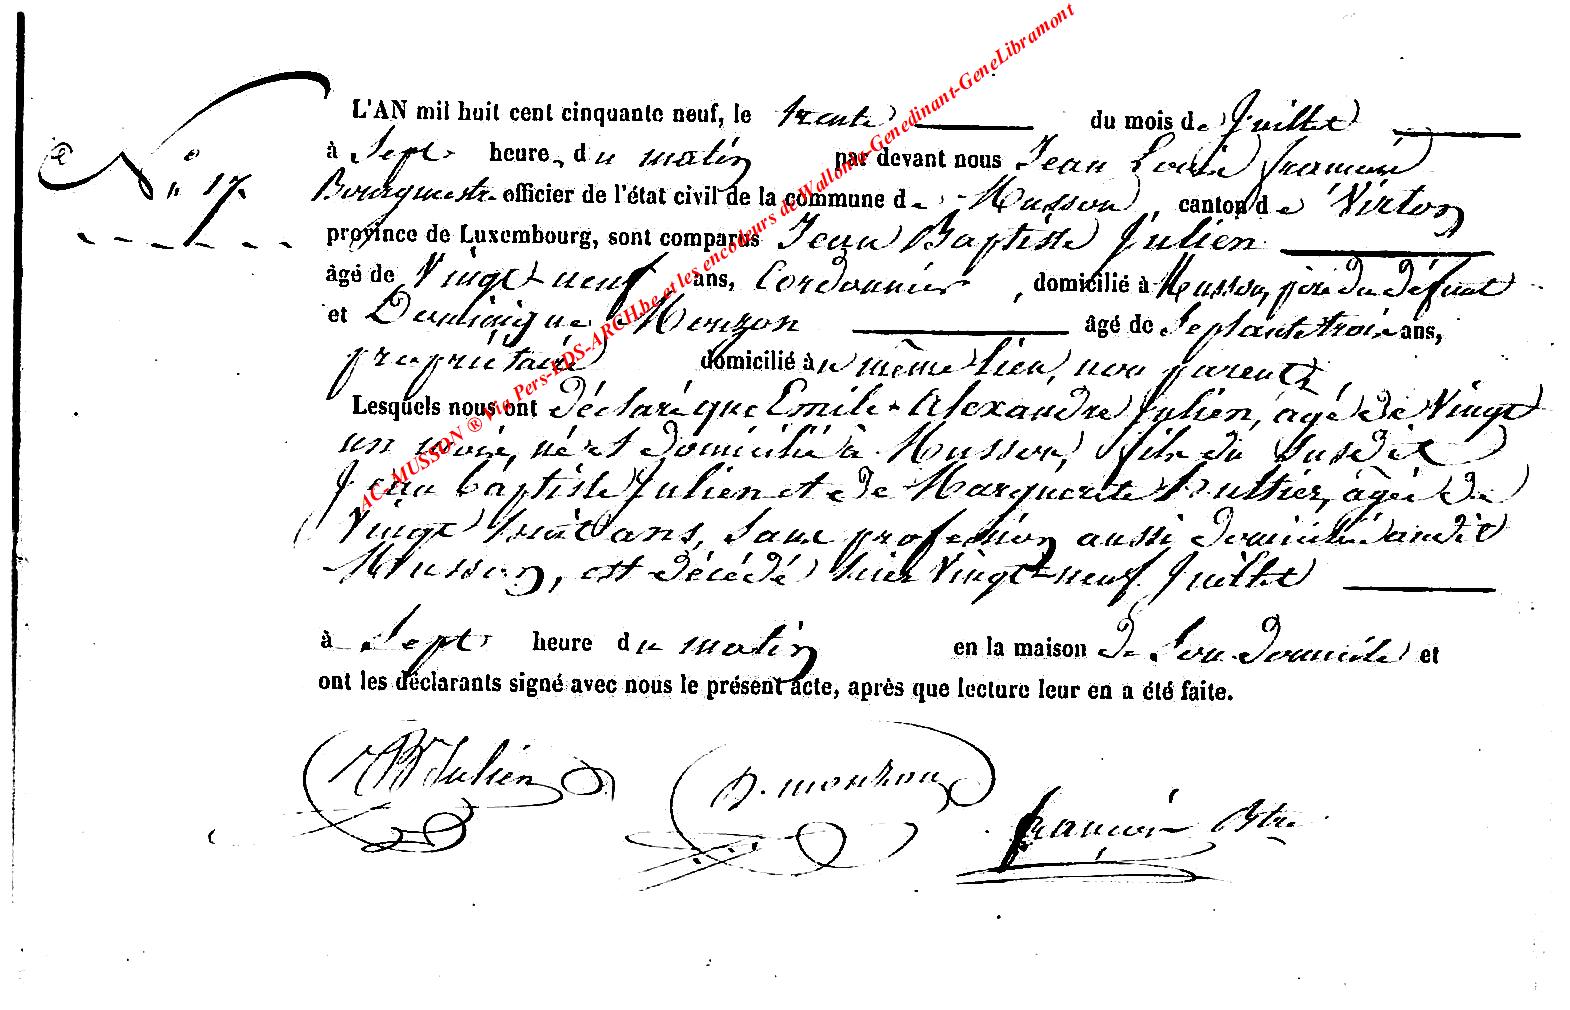 L'AN mil huit cent cinquante neuf, le trente du mois de Juillet
à Sept heure du matin par devant nous Jean Louis françois
N° 17. Bourgmestre officier de l'état civil de la commune de Musson, canton de Virton
province de Luxembourg, sont comparus Jean Baptiste Julien
âgé de Vingt-neuf ans, Cordonnier, domicilié à Musson, père du défunt
et Dominique Mouzon âgé de Septante trois ans,
propriétaire domicilié au même lieu, non parents,
Lesquels nous ont déclaré que Emile-Alexandre Julien, âgé de Vingt
un mois, né et domicilié à Musson, fils du susdit
Jean baptiste Julien et de Marguerite âgée de
Vingt huit ans, sans profession aussi domiciliée audit
Musson, est décédé hier Vingt-neuf Juillet
à Sept heure du matin en la maison de Son domicile et
ont les déclarants signé avec nous le présent acte, après que lecture leur en a été faite.
JB Julien D. mouzon françois Btre
AC-MUSSON ® Via Pers-EDS-ARCH.be et les encodeurs de Wallonia-Genedinant-GeneLibramont